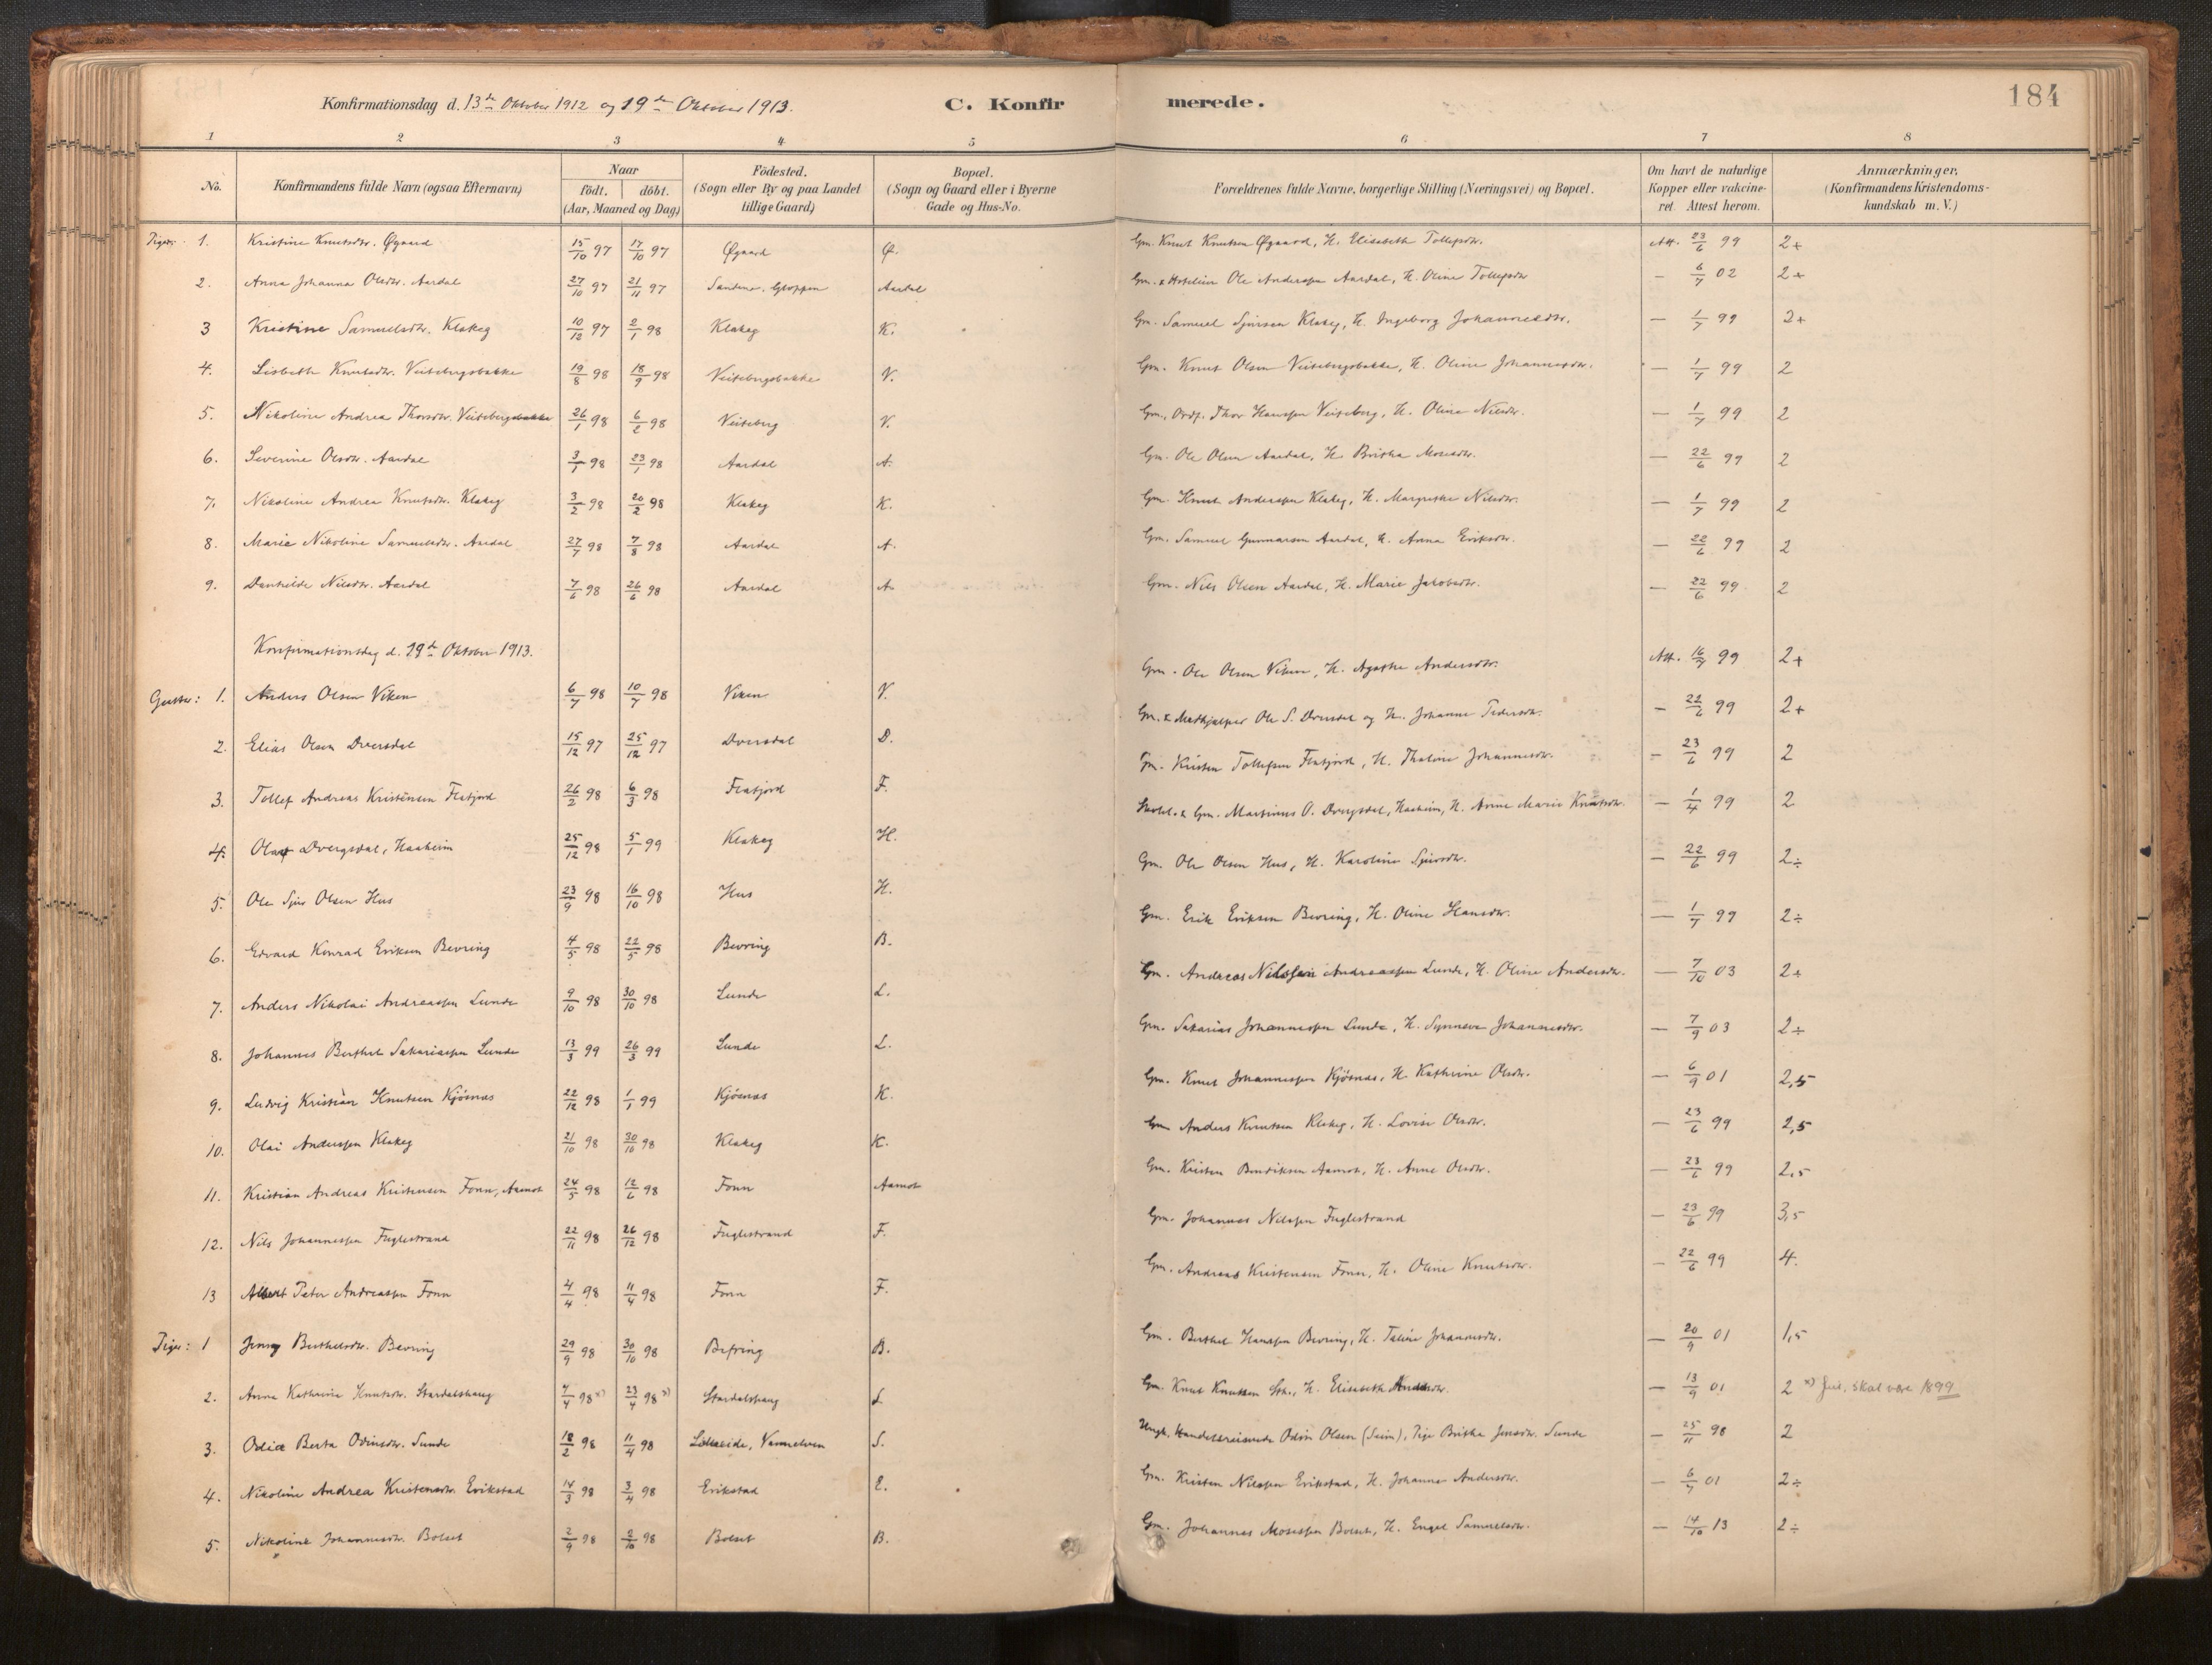 Konfirmationsdag d. 13de Oktober 1912 og 19de Oktober 1913. C. Konfirmerede. 184
1 2 3 4 5 6 7 8
No. Konfirmandens fulde Navn (ogsaa Efternavn) Naar født, døbt. (Aar, Maaned og Dag) Fødested. (Sogn eller By og paa Landet tillige Gaard) Bopæl. (Sogn og Gaard eller i Byerne Gade og Hus-No. Forældrenes fulde Navne, borgerlige Stilling (Næringsvei) og Bopæl. Om havt de naturlige Kopper eller vakcineret. Attest herom. Anmærkninger. (Konfirmandens Kristendomskundskab m. V.)
Piger: 1. Kristine Knutsdtr. Øygaard 15/10 97 17/10 97 Øygaard Ø. Gm. Knut Knutsen Øygaard, H. Elisabeth Tollefsdtr. Att. 23/6 99 2+
2. Anna Johanna Olsdtr. Aardal 27/10 97 21/11 97 Sandene, Gloppen Aardal Gm. & Hoteleier Ole Anderssen Aardal, H. Oline Tollefsdtr — 6/7 02 2+
3 Kristine Samuelsdtr. Klakeg 10/12 97 2/1 98 Klakeg K. Gm. Samuel Sjursen Klakeg, H. Ingeborg Johannesdtr. — 1/7 99 2+
4. Lisbeth Knutsdtr. Veitebergsbakke 19/8 98 18/9 98 Veitebergsbakke V. Gm. Knut Olsen Veitebergsbakke, H. Oline Johannesdtr. — 1/7 99 2
5. Nikoline Andrea Thorsdtr. Veiteberg 26/1 98 6/2 98 Veiteberg V. Gm., Ordf. Thor Hanssen Veiteberg, H. Oline Nilsdtr. — 1/7 99 2
6. Severine Olsdtr. Aardal 3/1 98 23/1 98 Aardal A. Gm. Ole Olsen Aardal, H. Britha Mosesdtr. — 22/6 99 2
7. Nikoline Andrea Knutsdtr. Klakeg 3/2 98 20/2 98 Klakeg K. Gm. Knut Anderssen Klakeg, H. Margrethe Nilsdtr. — 1/7 99 2
8. Marie Nikoline Samuelsdtr. Aardal 27/7 98 7/8 98 Aardal A. Gm. Samuel Gunnarson Aardal, H. Anna Eriksdtr. — 22/6 99 2
9. Danhilde Nilsdtr. Aardal 7/6 98 26/6 98 Aardal A. Gm. Nils Olsen Aardal, H. Marie Jakobsdtr. — 22/6 99 2
Konfirmationsdag d. 19de Oktober 1913.
Gutter: 1. Anders Olsen Viken 6/7 98 10/7 98 Viken V. Gm. Ole Olsen Viken, H. Agathe Andersdtr. Att. 16/7 99 2+
2. Elias Olsen Dversdal 15/12 97 25/12 97 Dversdal D. Gm. & Medhjælper Ole S. Dversdal og H. Johanne Pedersdtr. — 22/6 99 2+
3. Tollef Andreas Kristensen Flatjord 26/2 98 6/3 98 Flatjord F. Gm. Kristen Tollefsen Flatjord, H. Thaline Johannesdtr. — 23/6 99 2
4. Olaf Dvergsdal, Haaheim 25/12 98 5/1 99 Klakeg H. & Gm. Martinus O. Dvergsdal, Haaheim, H. Anne Marie Knutsdtr. — 1/4 99 2
5. Ole Sjur Olsen Hus 23/9 98 16/10 98 Hus H. Gm. Ole Olsen Hus, H. Karoline Sjursdtr. — 22/6 99 2÷
6. Edvard Konrad Eriksen Bevring 4/5 98 22/5 98 Bevring B. Gm. Erik Eriksen Bevring, H. Oline Hansdtr. — 1/7 99 2÷
7. Anders Nikolai Andreassen Lunde 9/10 98 30/10 98 Lunde L. Gm. Andreas Nilssen Lunde, H. Oline Andersdtr. — 7/10 03 2÷
8. Johannes Berthel Sakariassen Lunde 13/3 99 26/3 99 Lunde L. Gm. Sakarias Johannessen Lunde, H. Synneva Johannesdtr. — 7/9 03 2÷
9. Ludvig Kristian Knutsen Kjösnas 22/12 98 1/1 99 Kjösnas K. Gm. Knut Johannessen Kjösnas, H. Kathrine Olsdtr. — 6/9 01 2,5
10. Olai Anderssen Klakeg 21/10 98 30/10 98 Klakeg K. Gm Anders Knutsen Klakeg, H. Lovise Olsdtr. — 23/6 99 2,5
11. Kristian Andreas Kristensen Fonn, Aamot 24/5 98 12/6 98 Fonn Aamot Gm. Kristen Bendiksen Aamot, H. Anne Olsdtr. — 23/6 99 2,5
12. Nils Johannessen Fuglestrand 22/11 98 26/12 98 Fuglestrand F. Gm. Johannes Nilssen Fuglestrand — 23/6 99 3,5
13 Albert Peter Andreassen Fonn 4/4 98 11/4 98 Fonn F. Gm. Andreas Kristensen Fonn, H. Oline Knutsdtr. — 22/6 99 4.
Piger: 1 Jenny Berthelsdtr. Bevring 29/9 98 30/10 98 Befring B. Gm. Berthel Hanssen Bevring, H. Taline Johannesdtr. — 20/9 01 1,5
2. Anna Kathrina Knutsdtr. Stardalshaug 7/4 98 x) 23/4 98 x) Stardalshaug S. Gm. Knut Knutsen Sth., H. Elisabeth Andersdtr. — 13/9 01 2 x) skal være 1899
3. Odia Berta Odinsdtr. Sunde 18/2 98 11/4 98 Vannelven S. Ungk. Handelsreisende Odin Olsen (Seim), Pige Britha Jensdtr. Sunde — 25/11 98 2
4. Nikoline Andrea Kristensdtr. Erikstad 14/3 98 3/4 98 Erikstad E. Gm. Kristen Nilssen Erikstad, H. Johanne Andersdtr. — 6/7 01 2÷
5. Nikoline Johannesdtr. Bolset 2/9 98 2/10 98 Bolset B. Gm. Johannes Mosessen Bolset, H. Engel Samuelsdtr. — 14/10 13 2÷